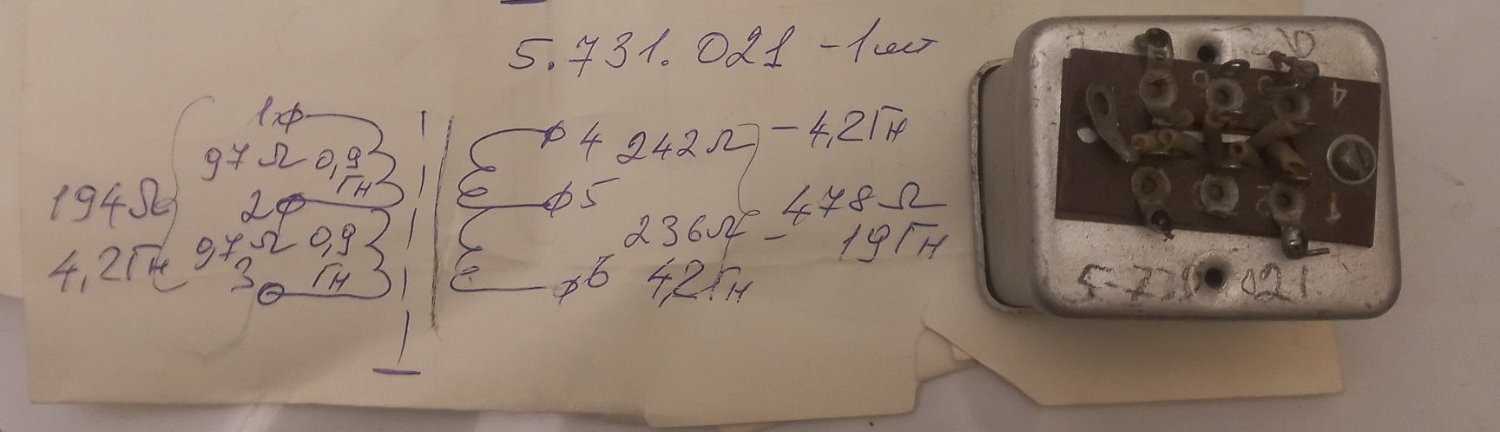 5.731.021 - 1 шт
1
97Ω 0,9 Гн
2
97Ω 0,9 Гн
3
194Ω
4,2Гн
4 242Ω - 4,2Гн
5
236Ω - 478Ω
19Гн
6 4,2Гн
4
1
5-730 021